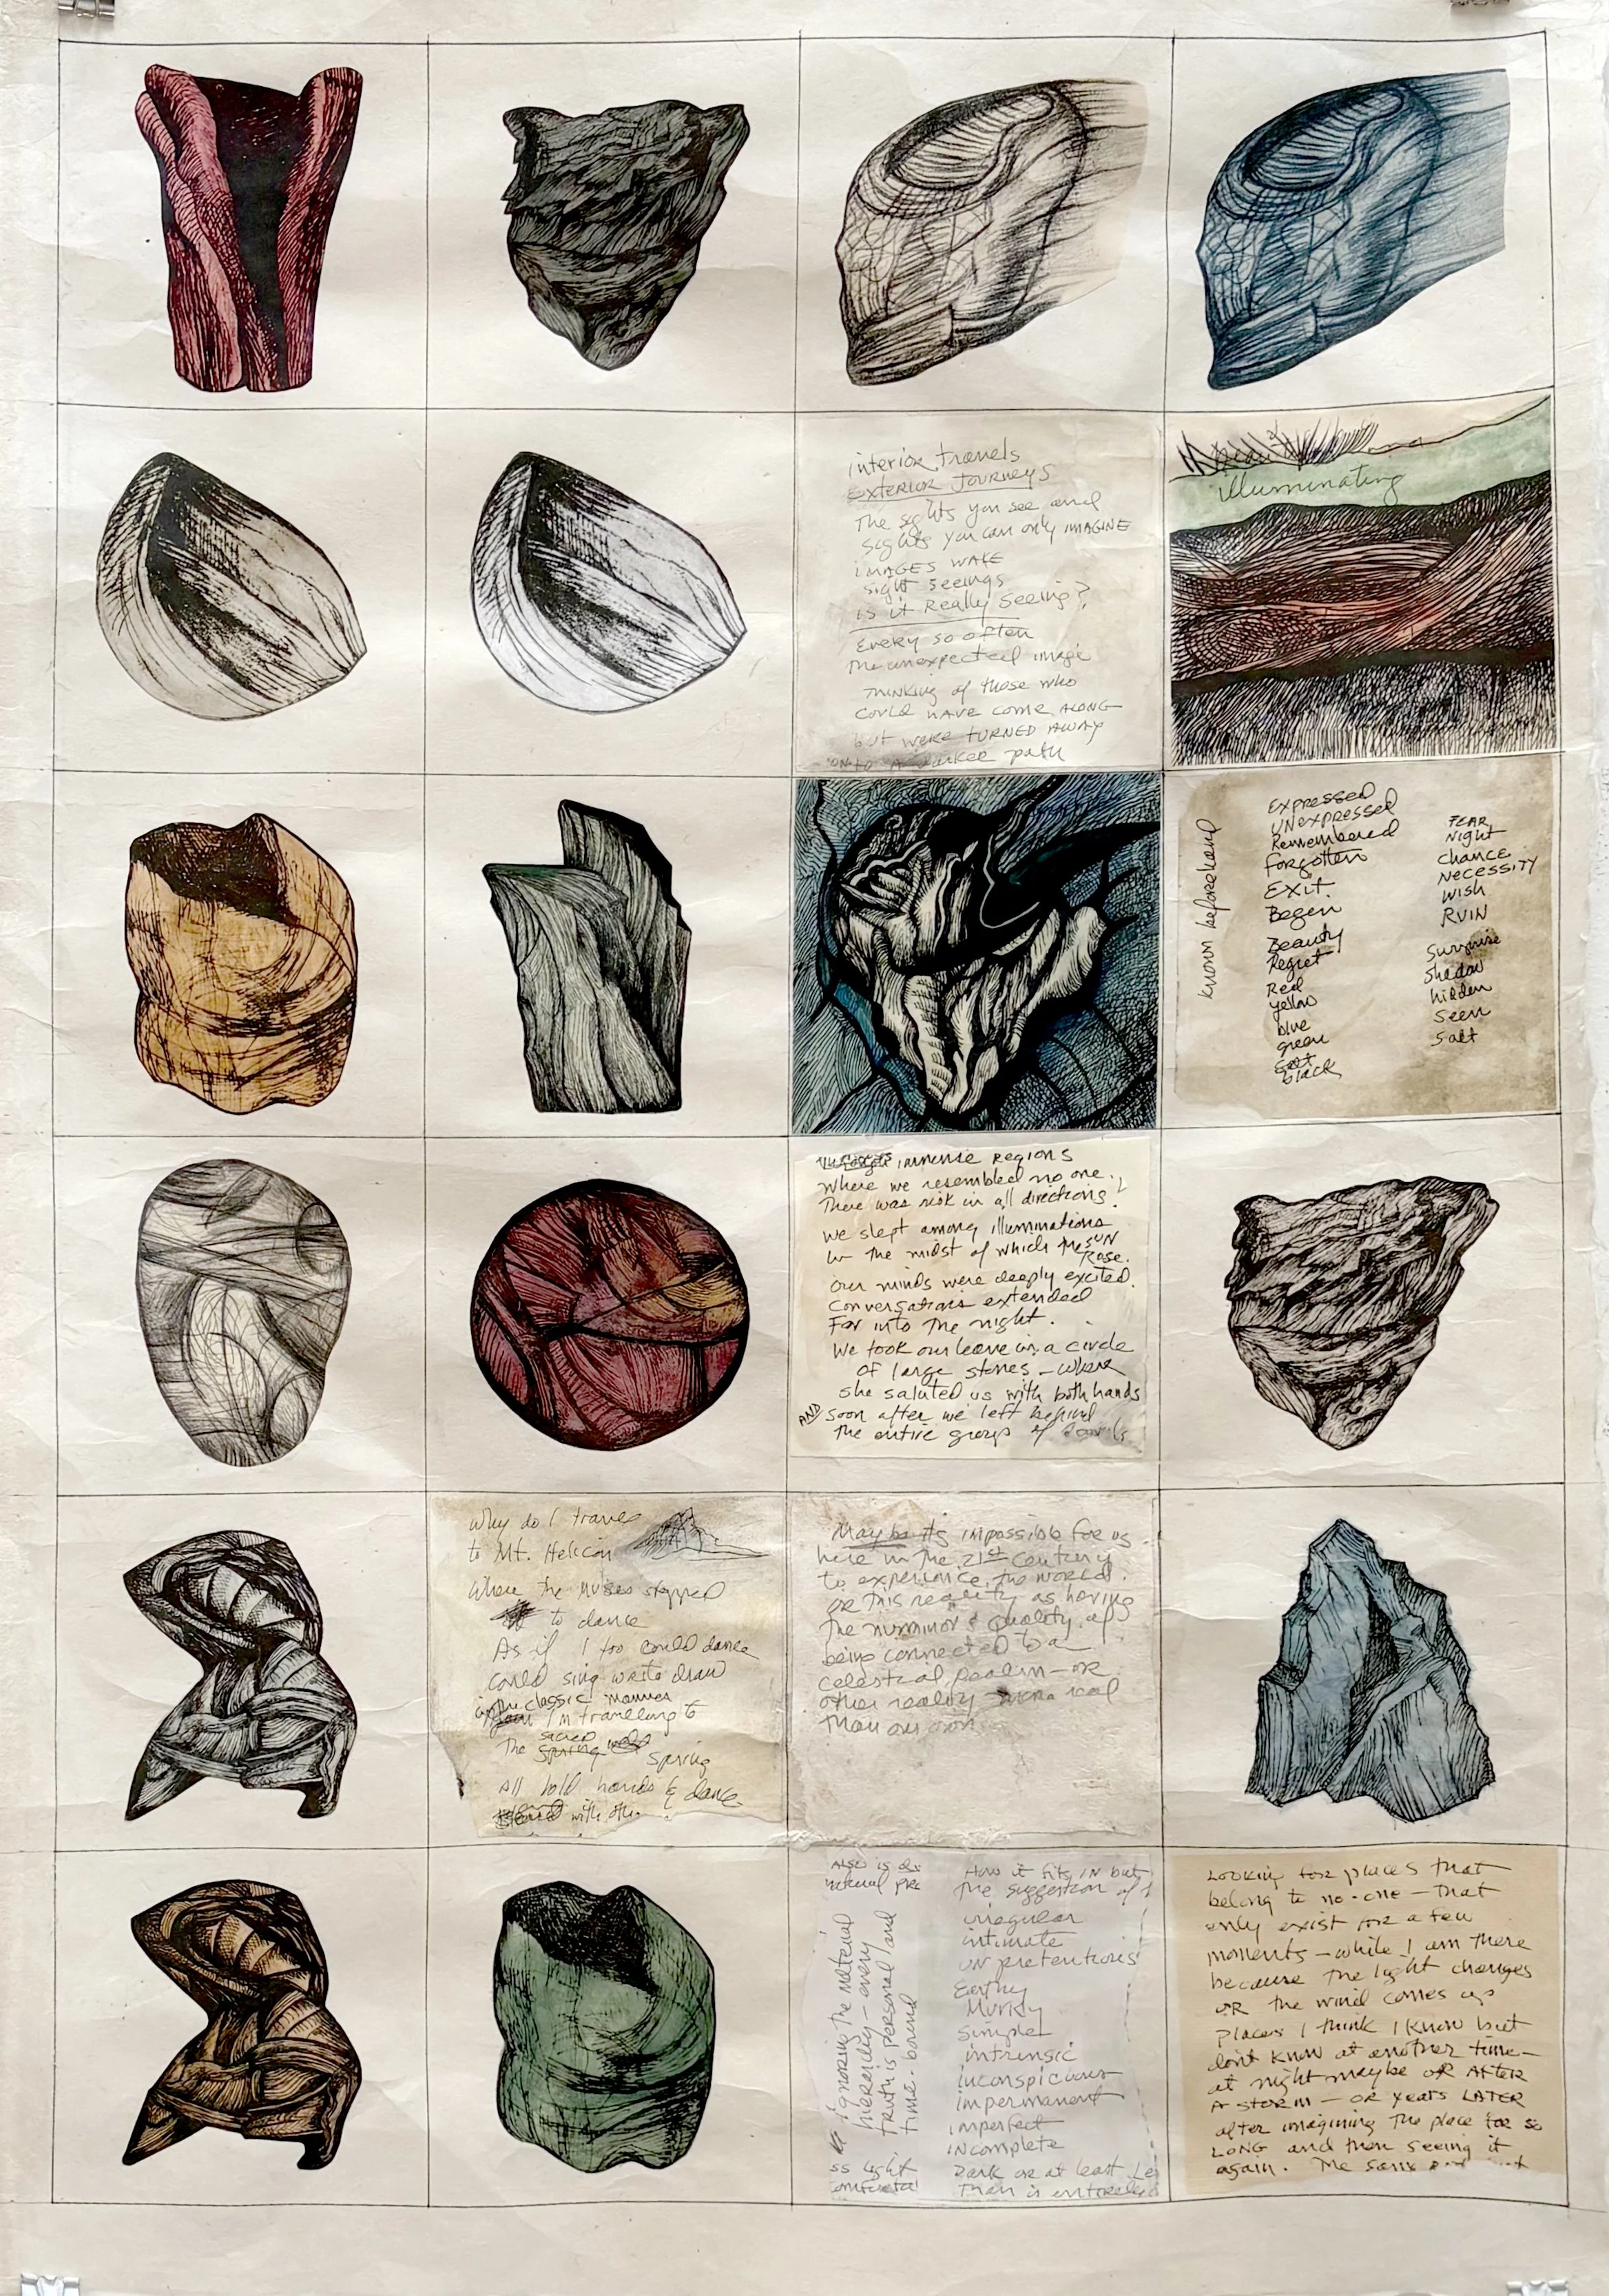 interior travels
EXTERIOR JOURNEYS
The sights you see and
sights you can only IMAGINE
IMAGES WAKE
sight seeings
is it Really seeing?
Every so often
the unexpected image
THINKING of those who
COULD HAVE COME ALONG
but WERE TURNED AWAY
ONTO A darker path
illuminating
known beforehand
EXPRESSED
UNEXPRESSED
Remembered
forgotten
EXIT
Begin
Beauty
Regret
Red
yellow
blue
green
black
FEAR
Night
CHANCE
NECESSITY
WISH
RUIN
Surprise
Shadow
hidden
Seen
Salt
immense REGIONS
Where we resembled no one.
There was risk in all directions!
we slept among illuminations
in the midst of which the SUN
Rose.
Our minds were deeply excited.
Conversations extended
Far into The night.
We took our leave in a circle
OF large stones - where
she saluted us with both hands
AND soon after we left behind
the entire group of
Why do I travel
to Mt. Helicon
Where the Muses stopped
to dance
As if I too could dance
could sing write draw
in the classic manner
I'm travelling to
The sacred
spring
All hold hands & dance
with
Maybe its impossible for us
here in the 21st Century
to experience the world
OR this reality as having
the numinous quality of
being connected to a
celestial realm - OR
other reality more real
than our own
Also is
How it fits IN but
The suggestion of
irregular
intimate
UN pretentious
Earthy
Murky
Simple
intrinsic
inconspicuous
impermanent
imperfect
INcomplete
Dark or at least
Than is
ignoring the material
hierarchy - every
truth is personal and
time-bound
light
LOOKING FOR places that
belong to no-one - that
only exist for a few
moments - while I am there
because the light changes
OR the wind comes up
places I think I know but
don't know at another time -
at night maybe OR AFTER
A STORM - OR years LATER
after imagining the place for so
LONG and then seeing it
again. The same